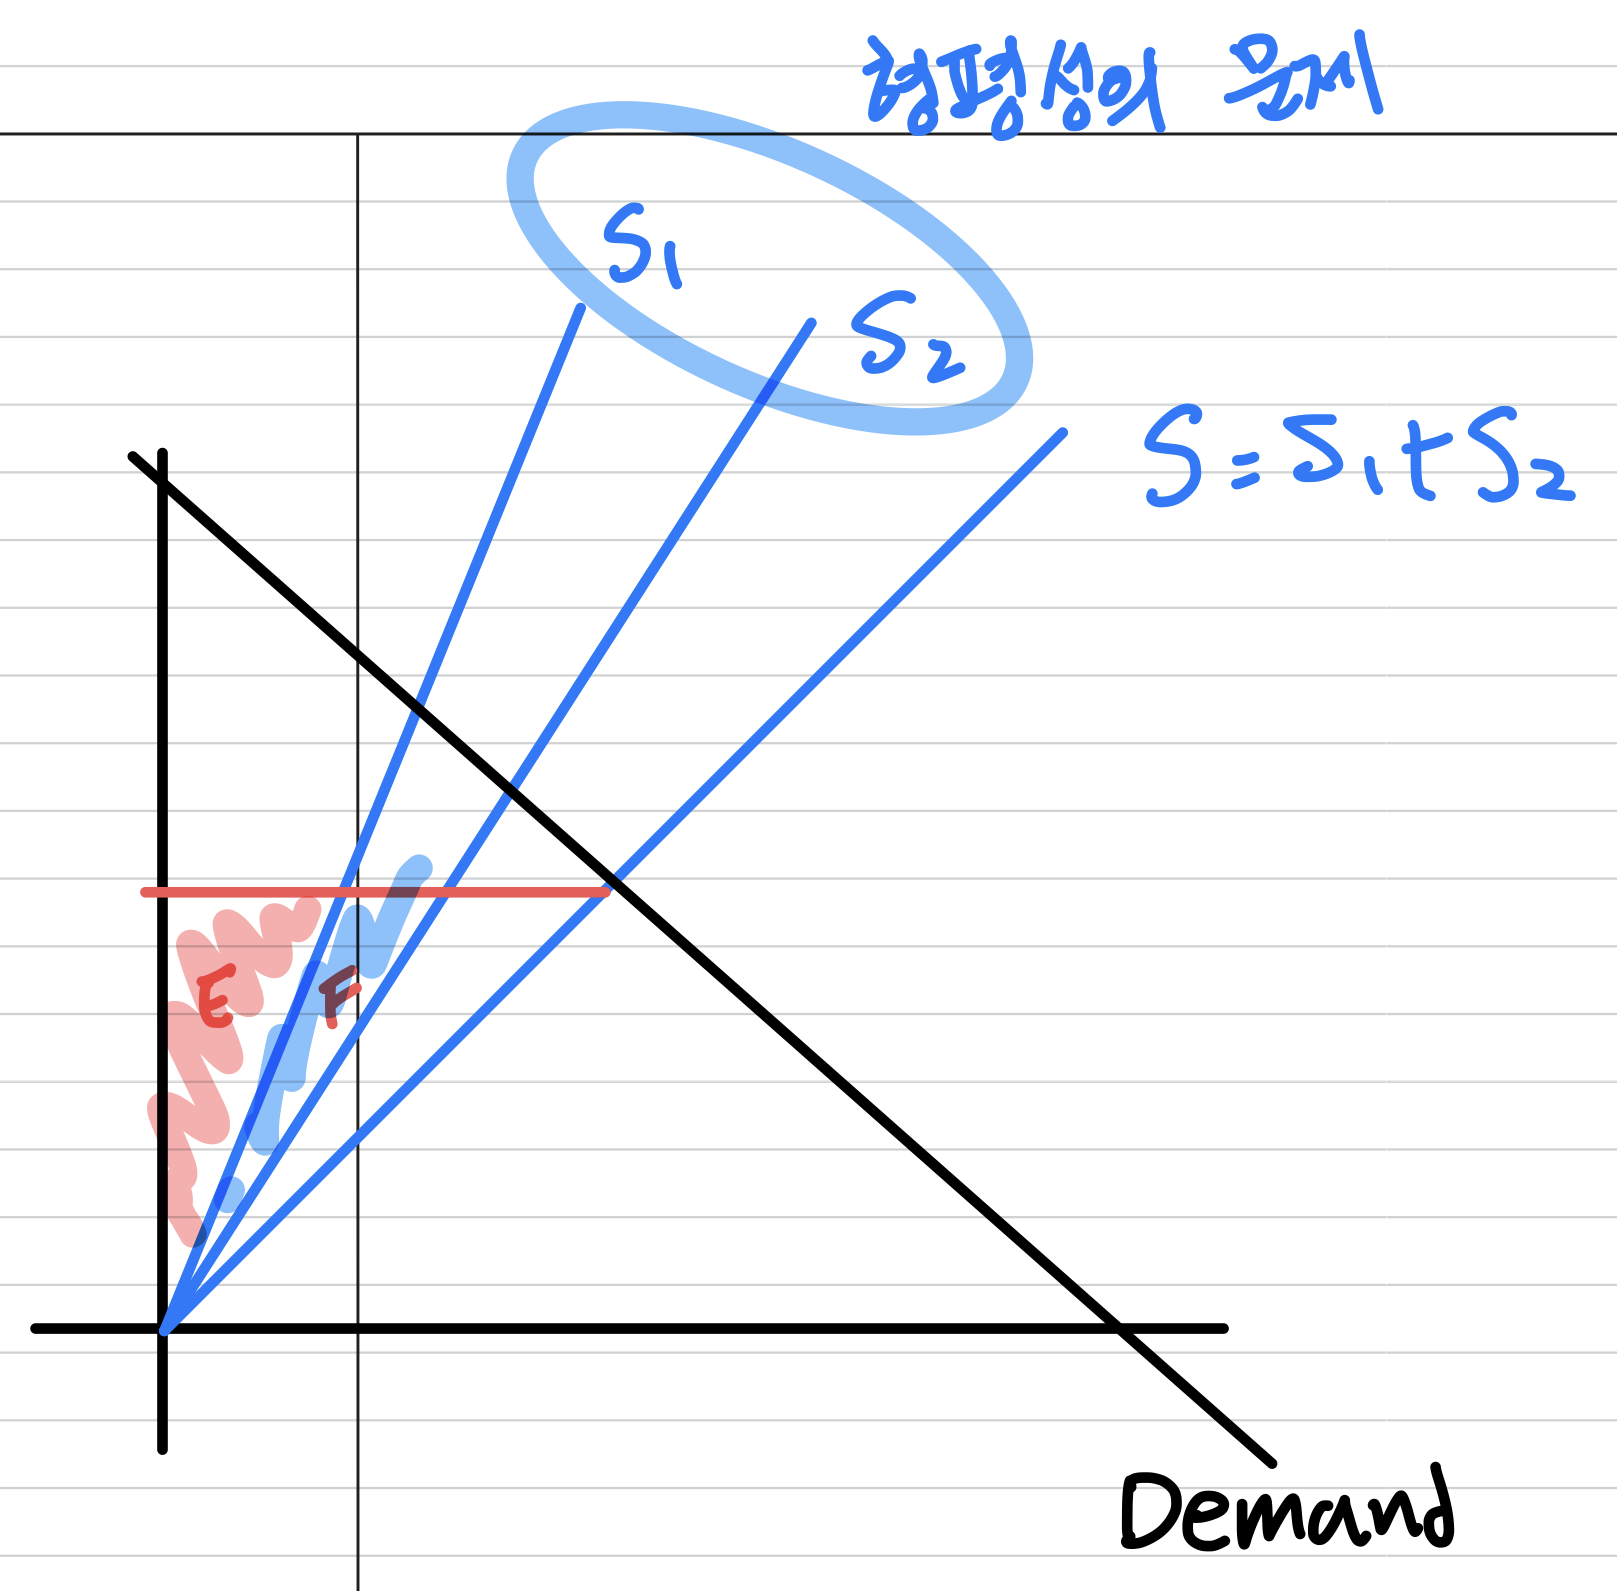 형평성의 문제
S1
S2
S=S1+S2
E
F
Demand